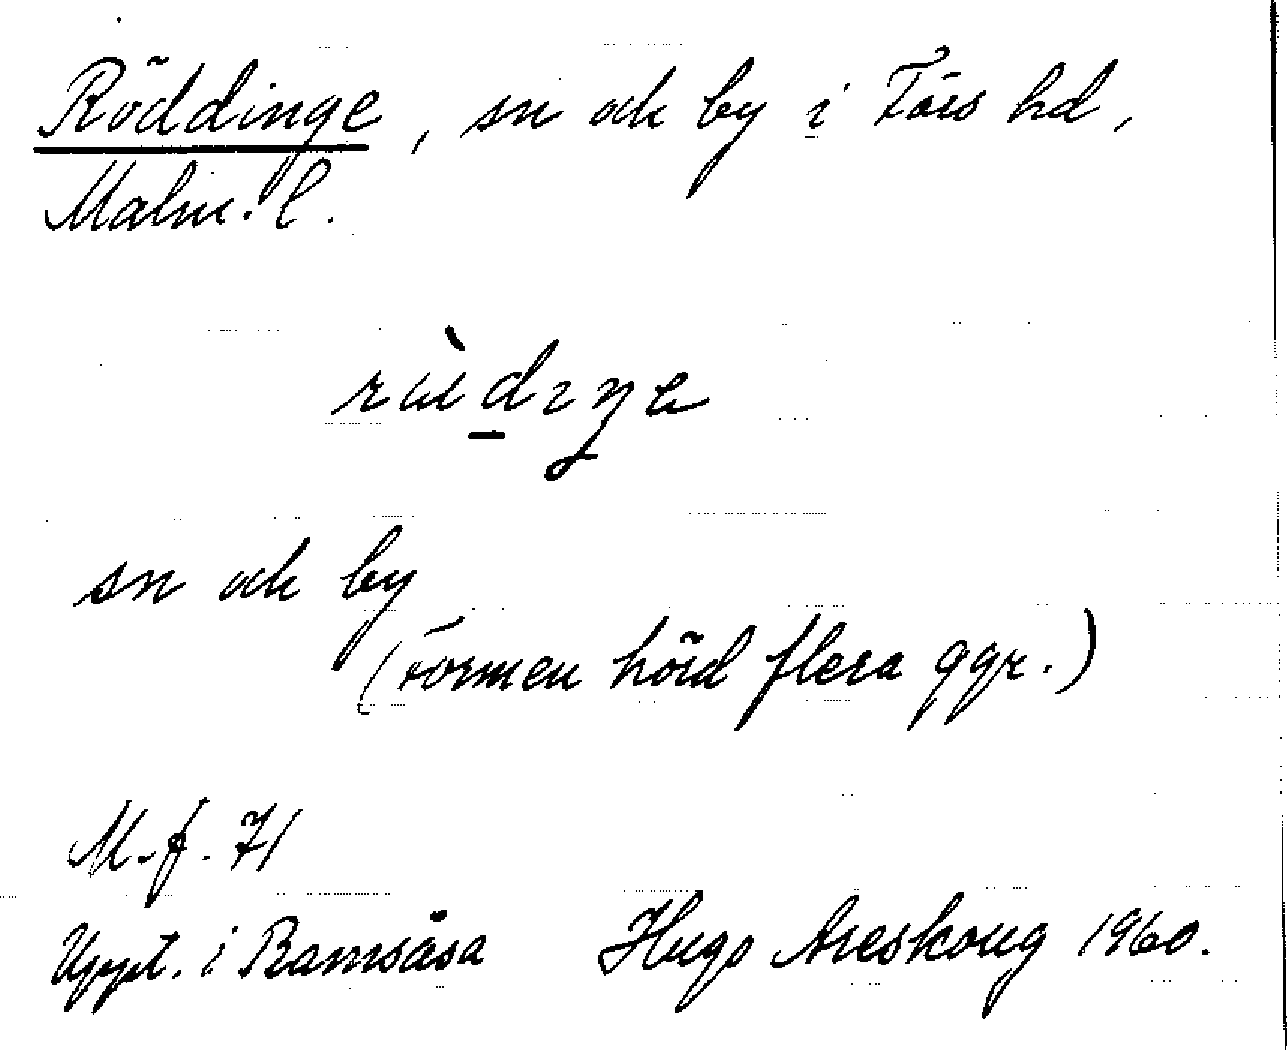 Röddinge, sn och by i Färs hd,
Malm. l.
sn och by
(Formen hörd flera ggr.)
M.f. 71
Uppt. i Ramsåsa Hugo Areskoug 1960.